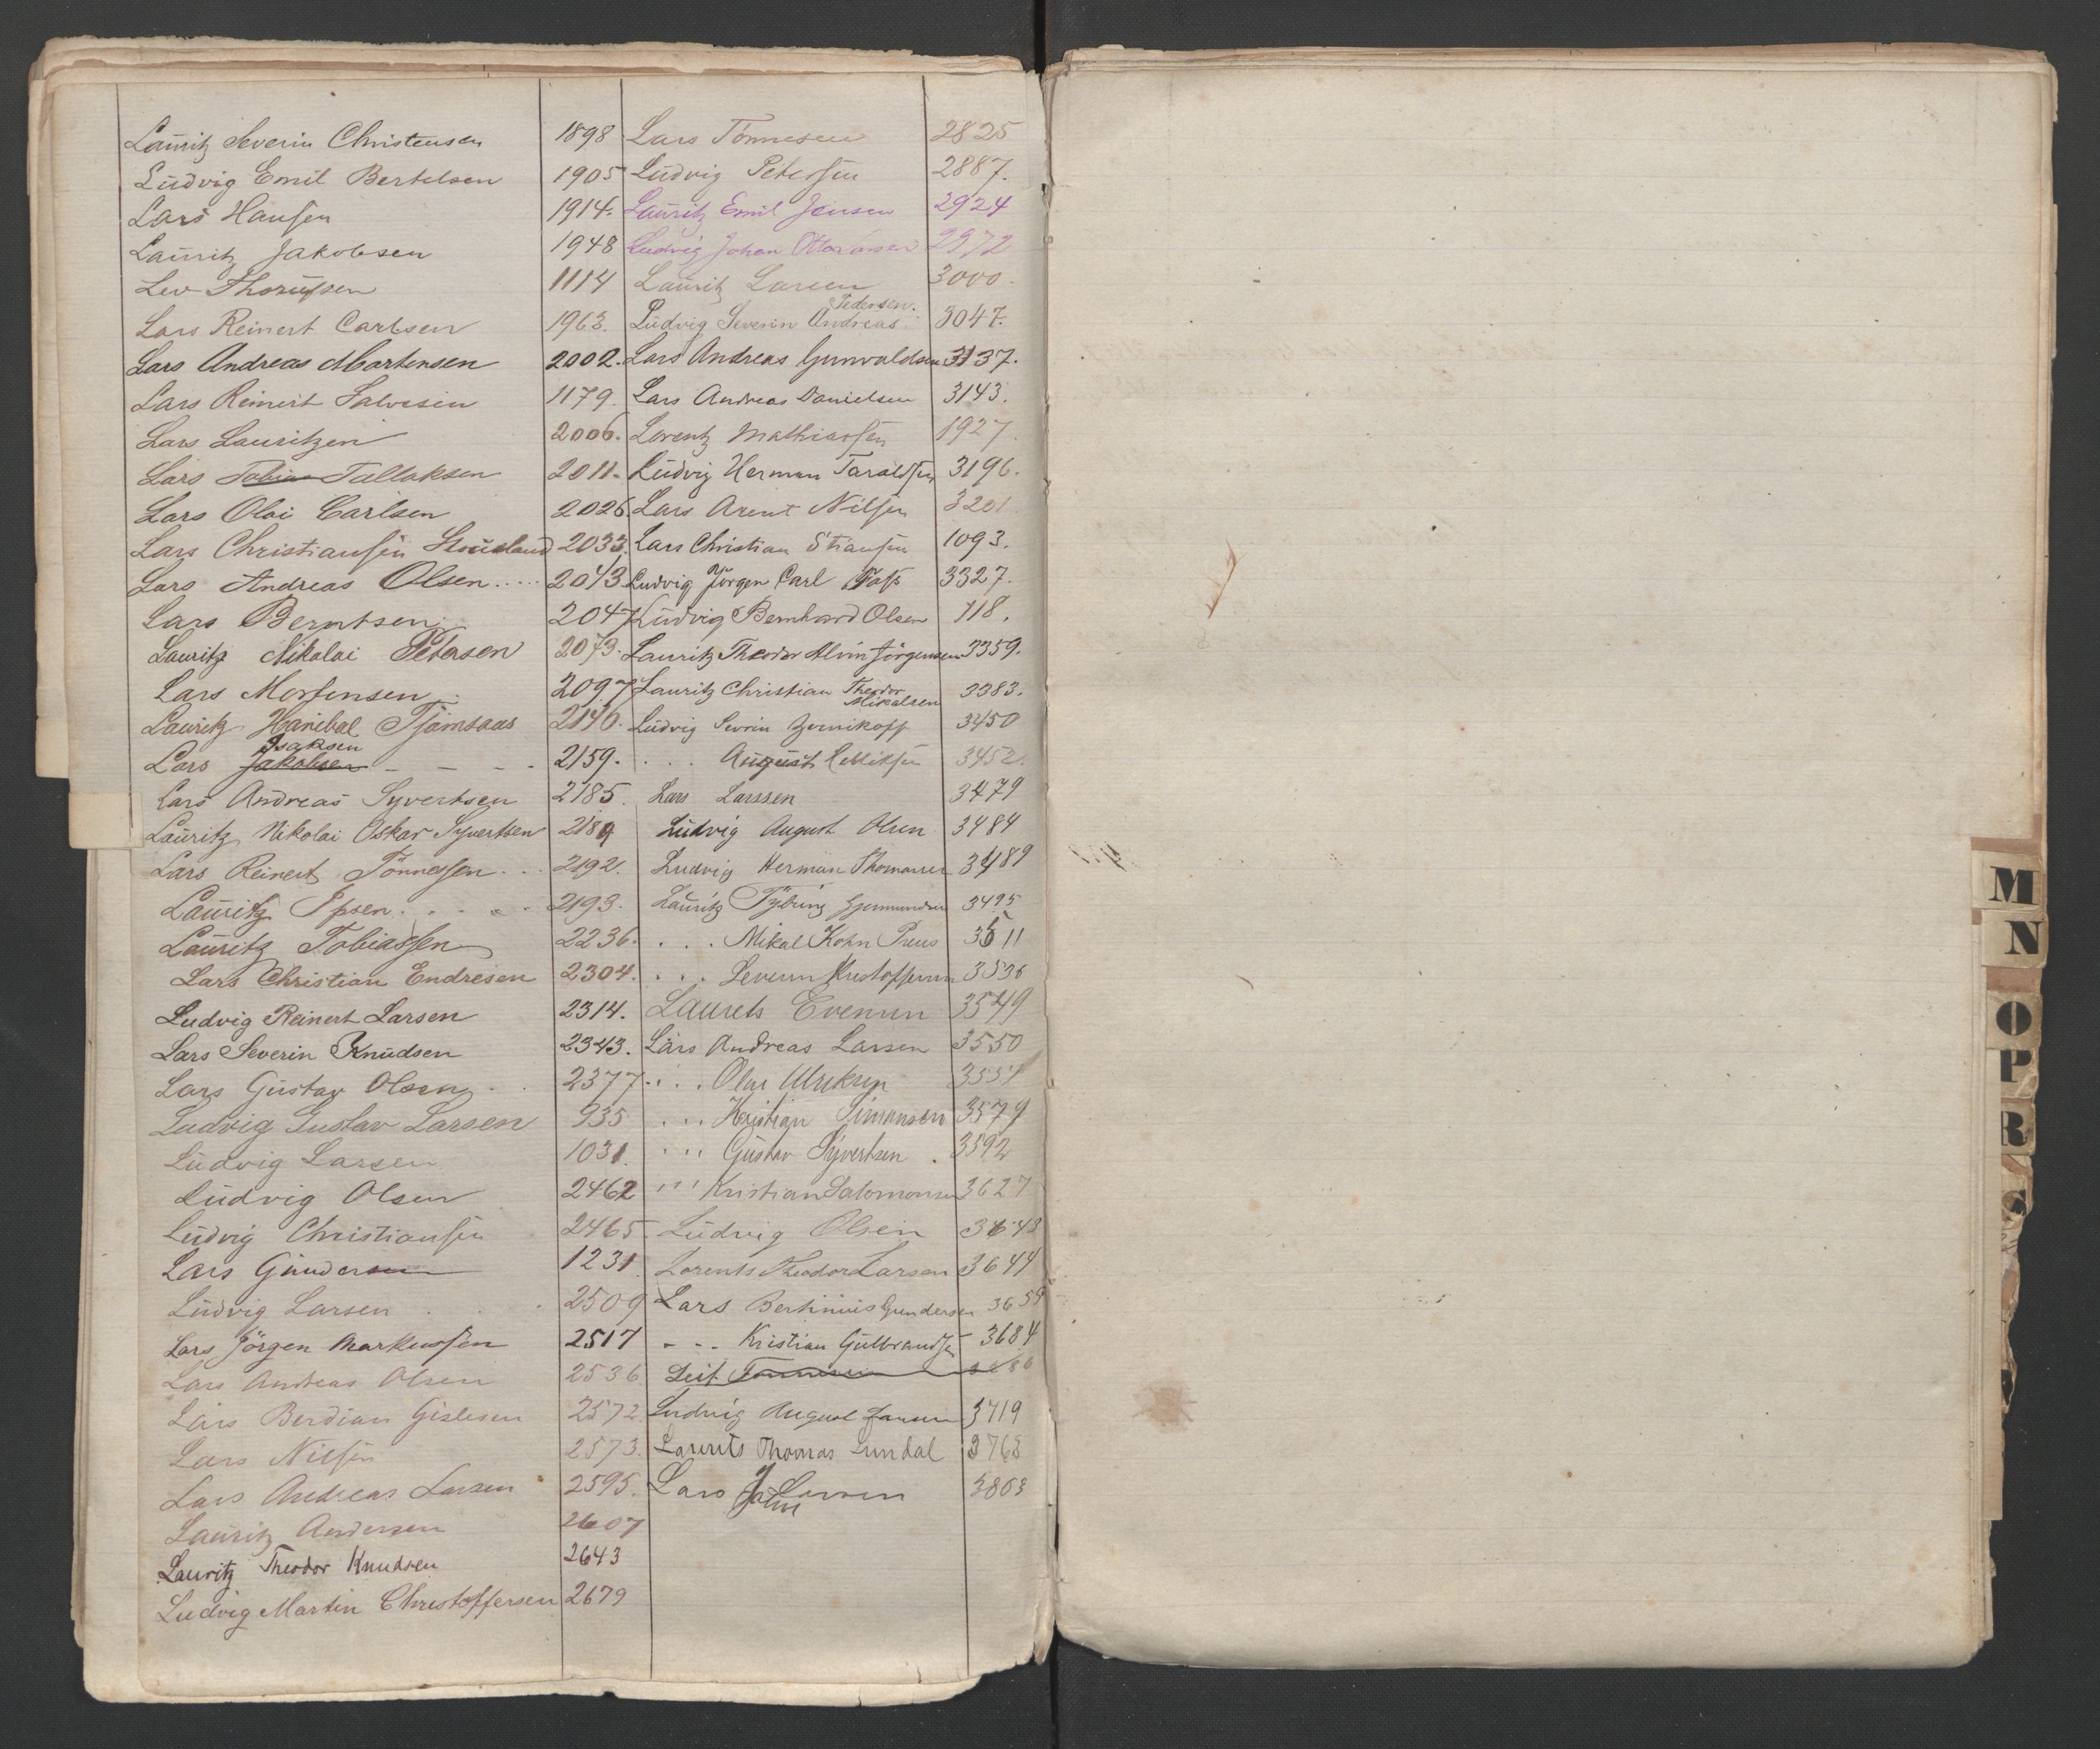 Lauritz Severin Christensen 1898
Ludvig Emil Bertelsen 1905
Lars Hansen 1914.
Lauritz Jakobsen 1948
Lev Thorussen 1114
Lars Reinert Carlsen 1963.
Lars Andreas Mortensen 2002.
Lars Reinert Salvesen 1179.
Lars Lauritzen 2006.
Lars Tobias Tallaksen 2011.
Lars Olai Carlsen 2026
Lars Christiansen 2033.
Lars Andreas Olsen..... 2043
Lars Berntsen 2047
Lauritz Nikolai Petersen 2073.
Lars Mortensen 2097
Lauritz Hanibal Tjömsaas 2146.
Isaksen
Lars Jakobsen - - - - 2159.
Lars Andreas Syvertsen 2185.
Lauritz Nikolai Oskar Syvertsen 2189
Lars Reinert Tönnessen... 2192.
Lauritz Ipsen..... 2193.
Lauritz Tobiassen 2236.
Lars Christian Endresen 2304.
Ludvig Reinert Larsen 2314.
Lars Severin Knudsen 2343.
Lars Gustav Olsen.. 2377
Ludvig Gustav Larsen 935
Ludvig Larsen 1031.
Ludvig Olsen 2462
Ludvig Christiansen 2465
Lars Gundersen 1231
Ludvig Larsen... 2509
Lars Jörgen Markussen 2517
Lars Andreas Olsen 2536
Lars Berdian Gislesen 2572
Lars Nilsen 2573.
Lars Andreas Larsen 2595.
Lauritz Andersen 2607
Lauritz Theodor Knudsen 2643
Ludvig Martin Christoffersen 2679
Lars Tönnesen 2825
Ludvig Petersen 2887.
Lauritz Emil Jensen 2924
Ludvig Johan Ottar 2972
Lauritz Larsen 3000.
Pedersen.
Ludvig Severin Andreas 3047.
Lars Andreas Gunvaldsen 3137.
Lars Andreas Danielsen 3143.
Lorentz Mathiassen 1927.
Ludvig Herman Taraldsen 3196.
Lars Arent Nilsen 3201
Lars Christian Stiansen 1093.
Ludvig Jörgen Carl 3327.
Ludvig Bernhard Olsen 718.
Lauritz Theodor Alvin Jörgensen 3359.
Lauritz Christian Theodor 3383.
Mikalsen
Ludvig Sevrin 3450
... August 3452.
Lars Larssen 3479
Ludvig August Olsen 3484
Ludvig Herman Thomassen 3489
Lauritz Gjermundsen 3495
... Mikal Kohn Preus 3511
... Severin Kristoffersen 3536
Laurets Evensen 3549
Lars Andreas Larsen 3550
... Olai Ulriksen 3551
... Kristian Simonsen 3579
... Gustav Syvertsen. 3592
''' Kristian Salomonsen 3627
Ludvig Olsen 3643
Lorents Theodor Larsen 3644
Lars Bertinius Gundersen 3659
- - - Kristian Gulbrandsen 3684
Leif Tönnesen
Ludvig August Jansen 3719
Laurits Thomas Lundal 3763
Lars Larsen 3803
John
M
N
O
P
R
S